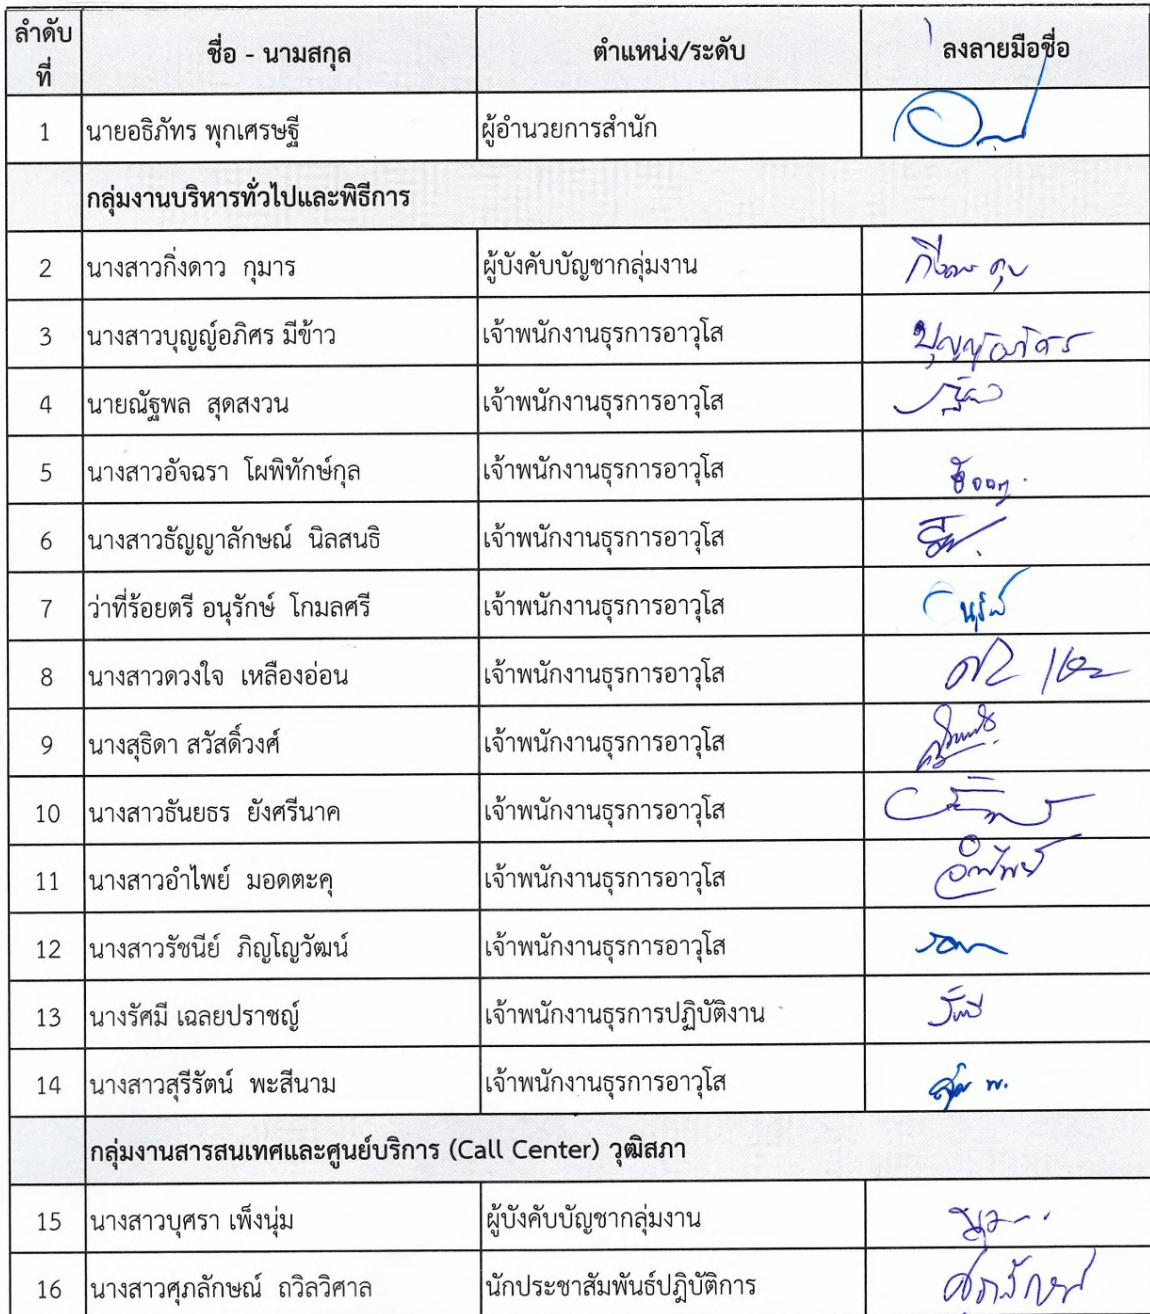 ลำดับที่ ชื่อ - นามสกุล ตำแหน่ง/ระดับ ลงลายมือชื่อ
1 นายอธิภัทร พุกเศรษฐี ผู้อำนวยการสำนัก
กลุ่มงานบริหารทั่วไปและพิธีการ
2 นางสาวกิ่งดาว กุมาร ผู้บังคับบัญชากลุ่มงาน
3 นางสาวบุญญ์อภิศร มีข้าว เจ้าพนักงานธุรการอาวุโส บุญญ์อภิศร
4 นายณัฐพล สุดสงวน เจ้าพนักงานธุรการอาวุโส
5 นางสาวอัจฉรา โผพิทักษ์กุล เจ้าพนักงานธุรการอาวุโส
6 นางสาวธัญญาลักษณ์ นิลสนธิ เจ้าพนักงานธุรการอาวุโส
7 ว่าที่ร้อยตรี อนุรักษ์ โกมลศรี เจ้าพนักงานธุรการอาวุโส
8 นางสาวดวงใจ เหลืองอ่อน เจ้าพนักงานธุรการอาวุโส
9 นางสุธิดา สวัสดิ์วงศ์ เจ้าพนักงานธุรการอาวุโส
10 นางสาวธันยธร ยังศรีนาค เจ้าพนักงานธุรการอาวุโส
11 นางสาวอำไพย์ มอดตะคุ เจ้าพนักงานธุรการอาวุโส อำไพย์
12 นางสาวรัชนีย์ ภิญโญวัฒน์ เจ้าพนักงานธุรการอาวุโส
13 นางรัศมี เฉลยปราชญ์ เจ้าพนักงานธุรการปฏิบัติงาน
14 นางสาวสุรีรัตน์ พะสีนาม เจ้าพนักงานธุรการอาวุโส
กลุ่มงานสารสนเทศและศูนย์บริการ (Call Center) วุฒิสภา
15 นางสาวบุศรา เพ็งนุ่ม ผู้บังคับบัญชากลุ่มงาน
16 นางสาวศุภลักษณ์ ถวิลวิศาล นักประชาสัมพันธ์ปฏิบัติการ